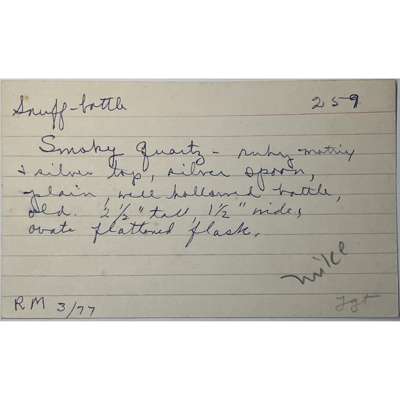 Snuff-bottle 259
Smoky Quartz - ruby matrix
& silver top, silver spoon,
plain, well hollowed bottle,
old. 2 1/2" tall, 1 1/2" wide,
ovate flattened flask.
mike
RM 3/77